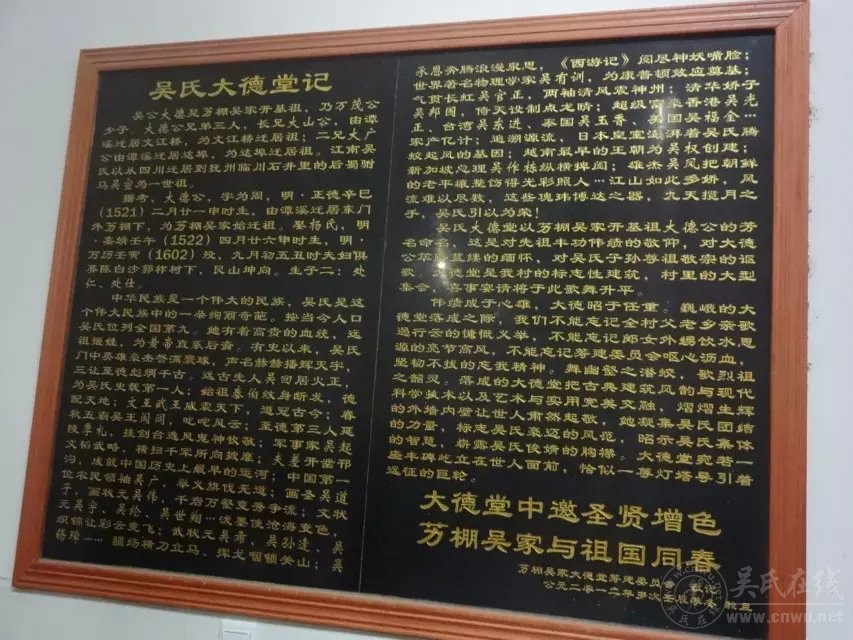 吴氏大德堂记
吴公大德是芳棚吴家开基祖，乃万茂公
少子，大德公兄弟三人，长兄大山公，由谭
溪迁居文江桥，为文江桥迁居祖；二兄大广
公由谭溪迁居达埠，为达埠迁居祖。江南吴
氏以从四川迁居到抚州临川石井里的后蜀驸
马吴宣为一世祖。
据考，大德公，字为周，明·正德辛巳
（1521）二月廿一申时生，由谭溪迁居东门
外芳棚下，为芳棚吴家始迁祖。娶杨氏，明
·嘉靖壬午（1522）四月廿六申时生，明·
万历壬寅（1602）殁，九月初五丑时夫妇俱
葬陈白沙郭柞树下，艮山坤向。生子二：处
仁、处仕。
中华民族是一个伟大的民族，吴氏是这
个伟大民族中的一朵绚丽奇葩。按当今人口
吴氏位列全国第九。她有着高贵的血统，远
祖姬姓，为黄帝直系后裔。有史以来，吴氏
门中英雄豪杰誉满寰球，声名赫赫播辉天宇，
三让至德彪炳千古。远古先人吴回居火正，
为吴氏史载第一人；始祖泰伯纹身断发，德
配天地；文王武王威震天下，道冠古今；春
秋五霸吴王阖闾，叱咤风云；至德第三人延
陵季札，挂剑台迭风鬼神钦敬；军事家吴起
文韬武略，横扫千军所向披靡；夫差开凿邗
沟，成就中国历史上最早的运河；中国第一
位农民领袖吴广，举义旗伐无道；画圣吴道
子，画状元吴伟，千岩万壑竞秀争流；文状
元吴宗、吴伦、吴世翔…泼墨使沧海变色，
织锦让彩云竞飞；武状元吴斋、吴孙达、吴
锡璋……疆场横刀立马，挥戈啸镇关山；吴
承恩奔腾浪漫泉思，《西游记》阅尽神妖嘴脸；
世界著名物理学家吴有训，为康普顿效应奠基；
气贯长虹吴官正，两袖清风震神州；清华娇子
吴邦国，倚天设制点龙睛；超级富豪香港吴光
正、台湾吴东进、泰国吴玉音、美国吴福全…
家产亿计；追溯源流，日本皇室澎湃着吴氏腾
蛟起凤的基因；越南最早的王朝为吴权创建；
新加坡总理吴作栋纵横捭阖；雄杰吴凤把朝鲜
的老平壤整饬得光彩照人…江山如此多娇，风
流难以尽数，这些瑰玮博达之器，九天揽月之
手，吴氏引以为荣！
吴氏大德堂以芳棚吴家开基祖大德公的芳
名命名，这是对先祖丰功伟绩的敬仰，对大德
公筚路蓝缕的缅怀，对吴氏子孙尊祖敬宗的讴
歌。大德堂是我村的标志性建筑，村里的大型
集会、喜事宴请将于此歌舞升平。
伟绩成于心雄，大德昭于任重。巍峨的大
德堂落成之际，我们不能忘记全村父老乡亲歌
遏行云的慷慨义举，不能忘记郎女外甥饮水思
源的亮节高风，不能忘记筹建委员会呕心沥血，
坚韧不拔的忘我精神。舞幽壑之潜蛟，歌烈祖
之韶灵。落成的大德堂把古典建筑风韵与现代
科学技术以及艺术与实用完美交融，熠熠生辉
的外墙内壁让世人肃然起敬，她凝集吴氏团结
的力量，标志吴氏豪迈的风范，昭示吴氏集体
的智慧，崭露吴氏俊婧的胸襟。大德堂宛若一
座丰碑屹立在世人面前，恰似一尊灯塔导引着
远征的巨轮。
大德堂中邀圣贤增色
芳棚吴家与祖国同春
芳棚吴家大德堂筹建委员会
公元二零一二年岁次壬辰 敬立
吴氏在线
www.cnwu.net